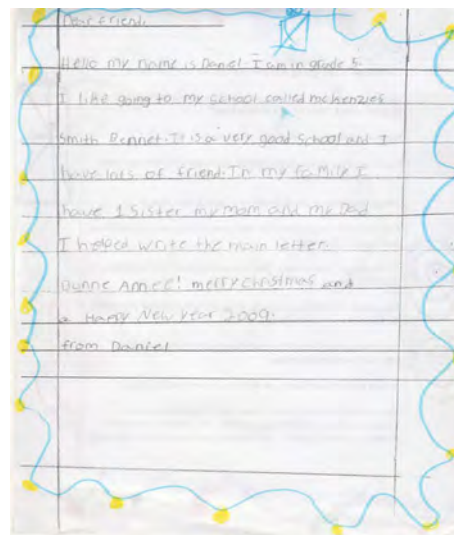 Dear friend,
Hello my name is Daniel. I am in grude 5.
I like going to my school called mckenzies
Smith Bennet. It is a very good school and I
have lots of friend. In my family I
have 1 sister my mom and my Dad
I helped write the main letter.
Bonne Année! merry christmas and
a Happy New Year 2009.
from Daniel